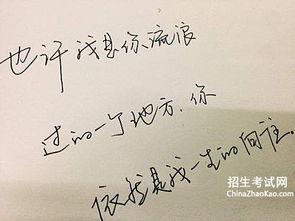 也许我是你流浪
过的一个地方,你
依然是我一生的向往.
招生考试网
ChinaZhaoKao.com